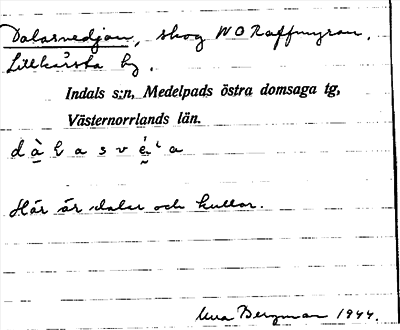 Dalasvedjan, skog NO Raffmyran,
Lillkårsta by.
Indals s:n, Medelpads östra domsaga tg,
Västernorrlands län.
Här är dalar och kullar.
Bergman 1944.